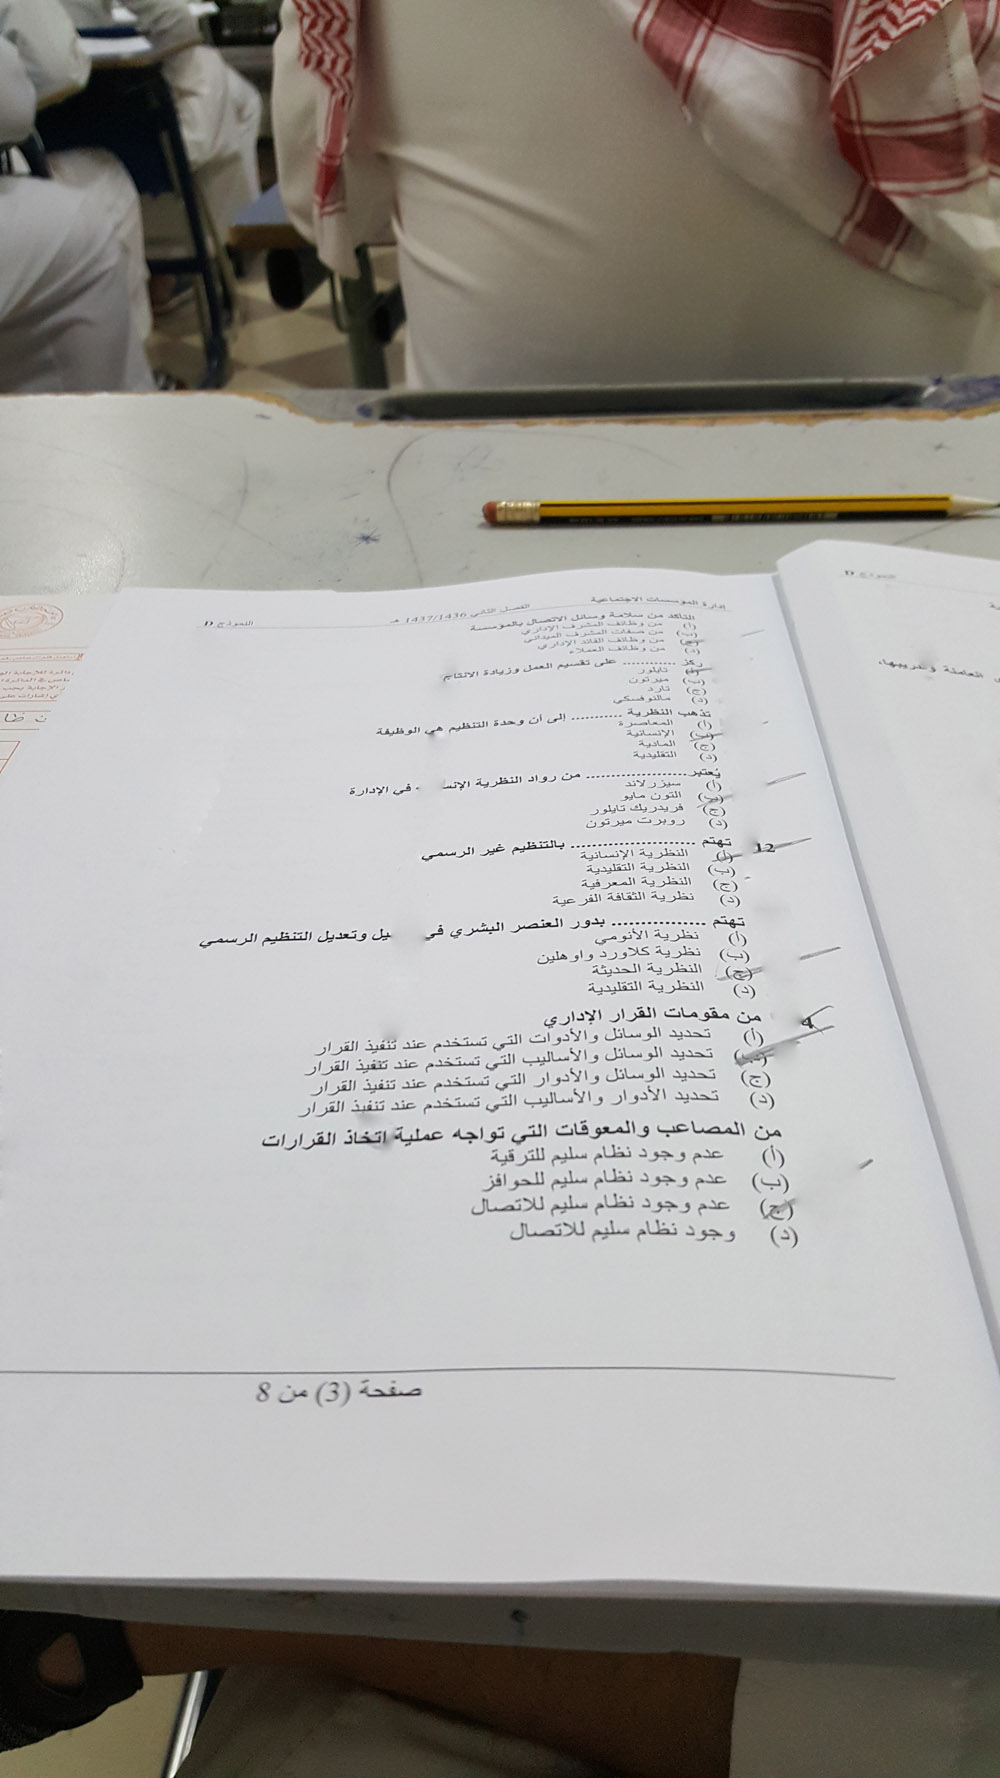 إدارة المؤسسات الاجتماعية الفصل الثاني 1437/1436 هـ النموذج D
التأكد من سلامة وسائل الاتصال بالمؤسسة
(أ) من وظائف المشرف الإداري
(ب) من صفات المشرف الميداني
(ج) من وظائف القائد الإداري
(د) من وظائف العملاء
ركز ............ على تقسيم العمل وزيادة الانتاج
(أ) تايلور
(ب) ميرتون
(ج) تارد
(د) مالنوفسكي
تذهب النظرية ............ إلى أن وحدة التنظيم هي الوظيفة
(أ) المعاصرة
(ب) الإنسانية
(ج) المادية
(د) التقليدية
يُعتبر .................... من رواد النظرية الإنسـ في الإدارة
(أ) سيزرلاند
(ب) التون مايو
(ج) فريدريك تايلور
(د) روبرت ميرتون
12 تهتم ...................... بالتنظيم غير الرسمي
(أ) النظرية الإنسانية
(ب) النظرية التقليدية
(ج) النظرية المعرفية
(د) نظرية الثقافة الفرعية
تهتم ................ بدور العنصر البشري في يل وتعديل التنظيم الرسمي
(أ) نظرية الأنومي
(ب) نظرية كلاورد واوهلين
(ج) النظرية الحديثة
(د) النظرية التقليدية
4 من مقومات القرار الإداري
(أ) تحديد الوسائل والأدوات التي تستخدم عند تنفيذ القرار
(ب) تحديد الوسائل والأساليب التي تستخدم عند تنفيذ القرار
(ج) تحديد الوسائل والأدوار التي تستخدم عند تنفيذ القرار
(د) تحديد الأدوار والأساليب التي تستخدم عند تنفيذ القرار
من المصاعب والمعوقات التي تواجه عملية اتخاذ القرارات
(أ) عدم وجود نظام سليم للترقية
(ب) عدم وجود نظام سليم للحوافز
(ج) عدم وجود نظام سليم للاتصال
(د) وجود نظام سليم للاتصال
صفحة (3) من 8
النموذج D
العاملة وتدريبها،